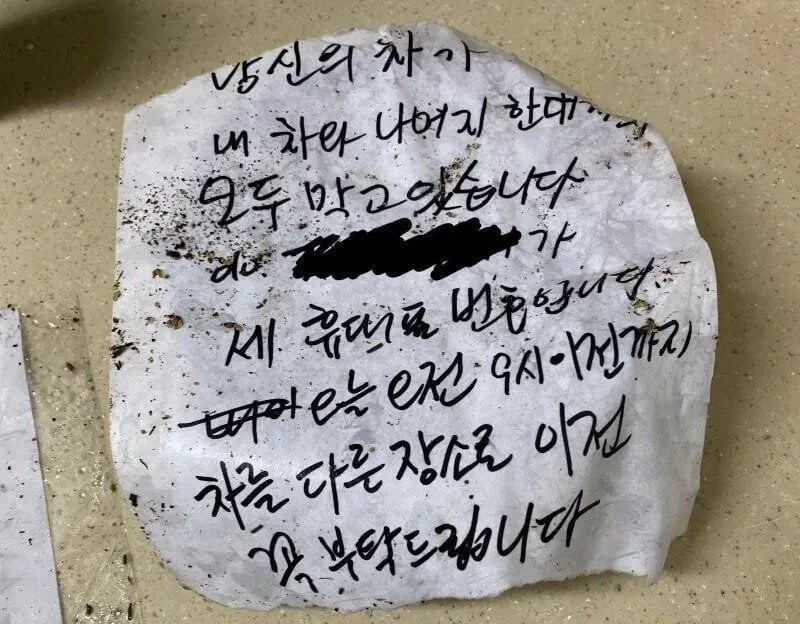 당신의 차가
내 차와 나머지 한대
모두 막고 있습니다
010 가
세 휴대폰 번호입니다
오늘 오전 9시이전까지
차를 다른 장소로 이전
꼭 부탁드립니다